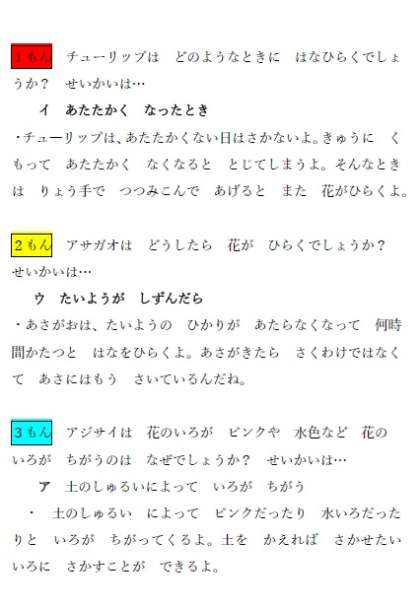 １もん　チューリップは　どのようなときに　はなひらくでしょ
うか？　せいかいは…
イ　あたたかく　なったとき
・チューリップは、あたたかくない日はさかないよ。きゅうに　く
もって　あたたかく　なくなると　とじてしまうよ。そんなとき
は　りょう手で　つつみこんで　あげると　また　花がひらくよ。
２もん　アサガオは　どうしたら　花が　ひらくでしょうか？
せいかいは…
ウ　たいようが　しずんだら
・あさがおは、たいようの　ひかりが　あたらなくなって　何時
間かたつと　はなをひらくよ。あさがきたら　さくわけではなく
て　あさにはもう　さいているんだね。
３もん　アジサイは　花のいろが　ピンクや　水色など　花の
いろが　ちがうのは　なぜでしょうか？　せいかいは…
ア　土のしゅるいによって　いろが　ちがう
・　土のしゅるい　によって　ピンクだったり　水いろだった
りと　いろが　ちがってくるよ。土を　かえれば　さかせたい
いろに　さかすことが　できるよ。